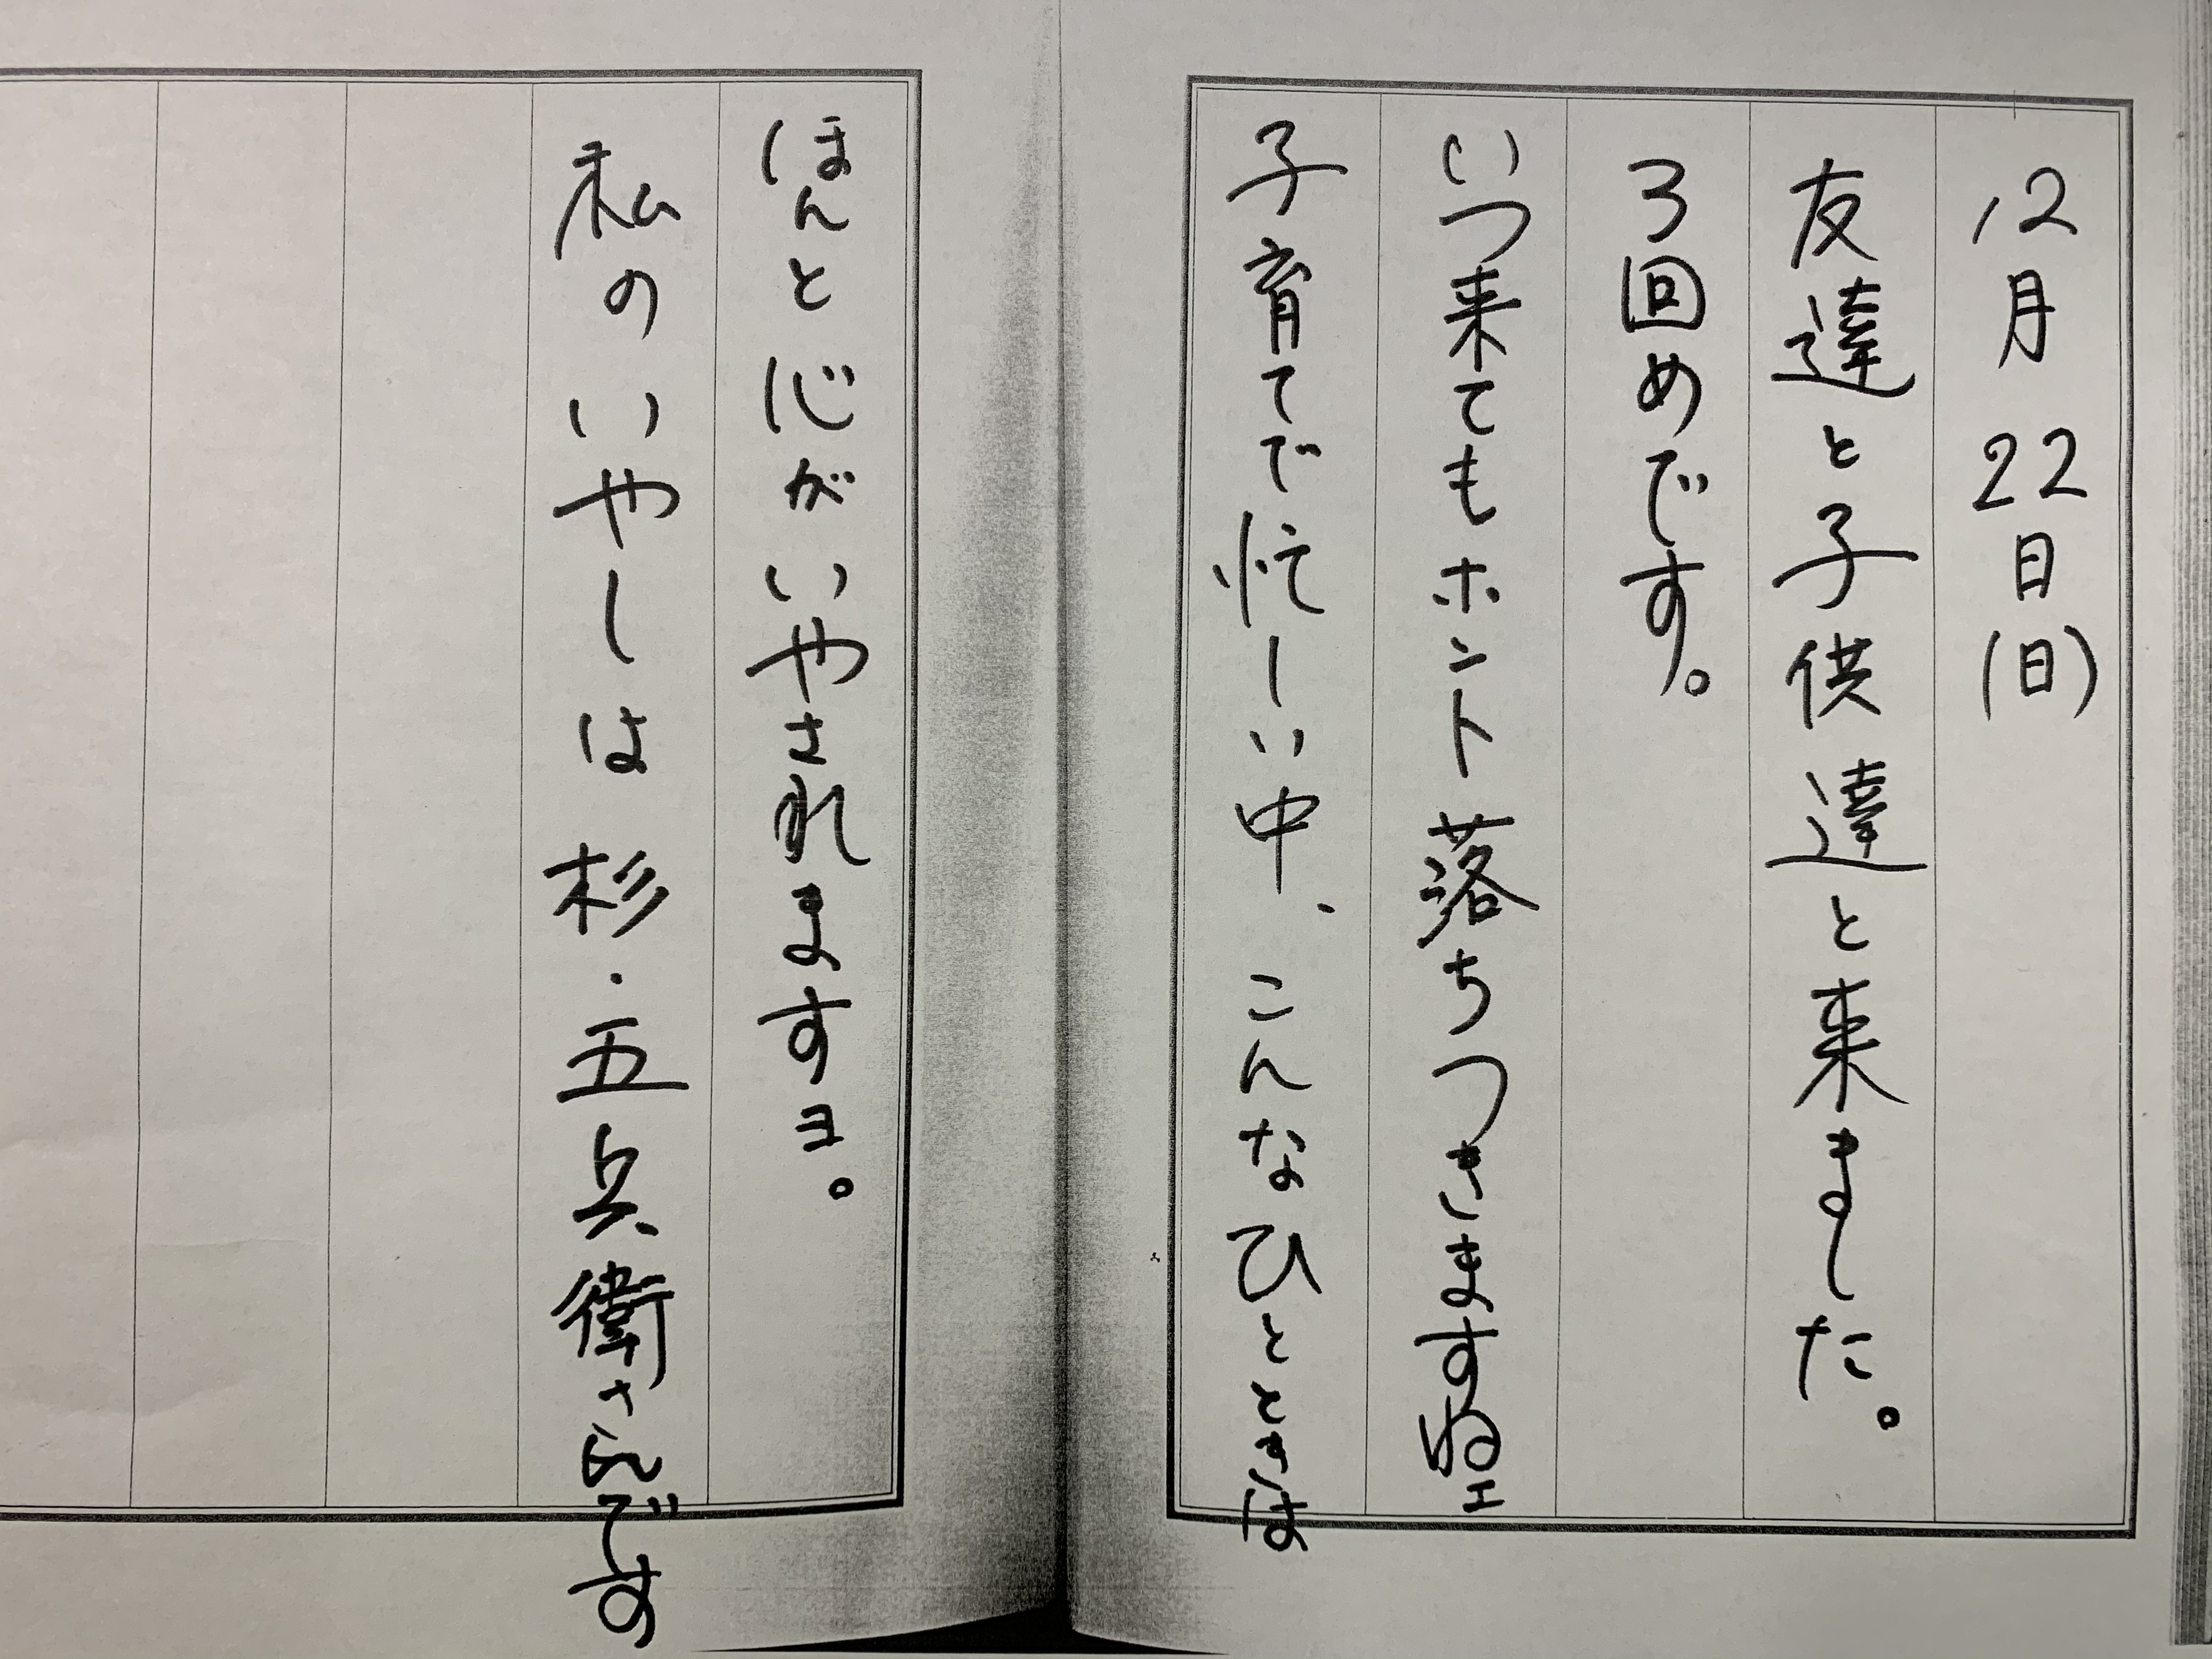 12月22日(日)
友達と子供達と来ました。
3回めです。
いつ来てもホント落ちつきますねェ
子育てで忙しい中、こんなひとときは
ほんと心がいやされますヨ。
私のいやしは杉・五兵衛さんです